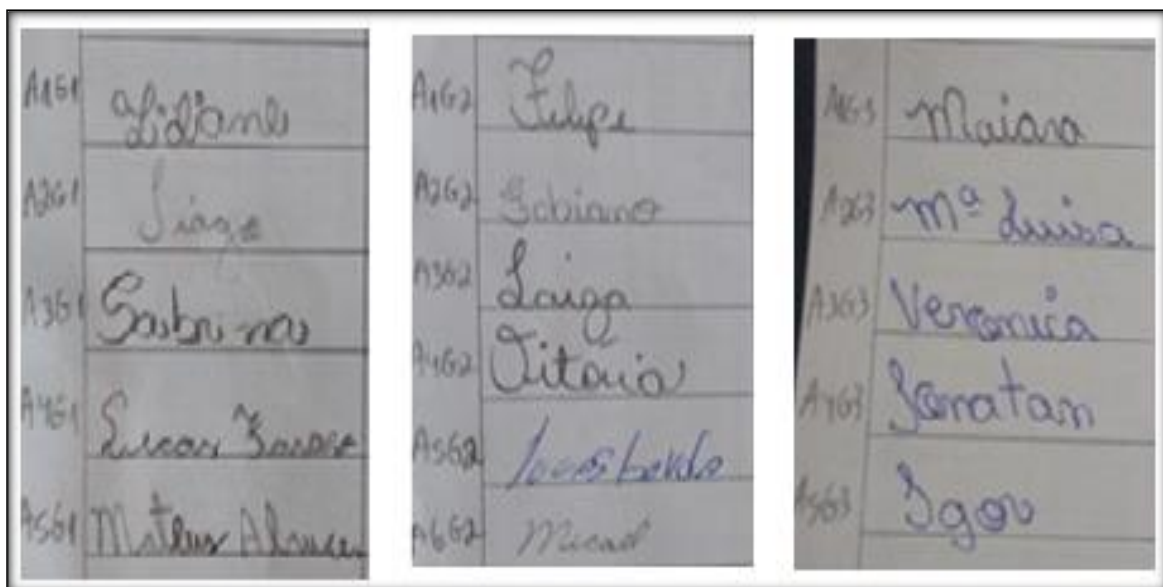 A1G1 Lidiane
A2G1 Tiago
A3G1 Sabrina
A4G1 Lucas
A5G1 Mateus
A1G2 Filipe
A2G2 Fabiano
A3G2 Laiza
A4G2 Vitória
A5G2
A6G2 Micael
A1G3 Maiara
A2G3 Mª Luisa
A3G3 Veronica
A4G3 Jonatan
A5G3 Igor